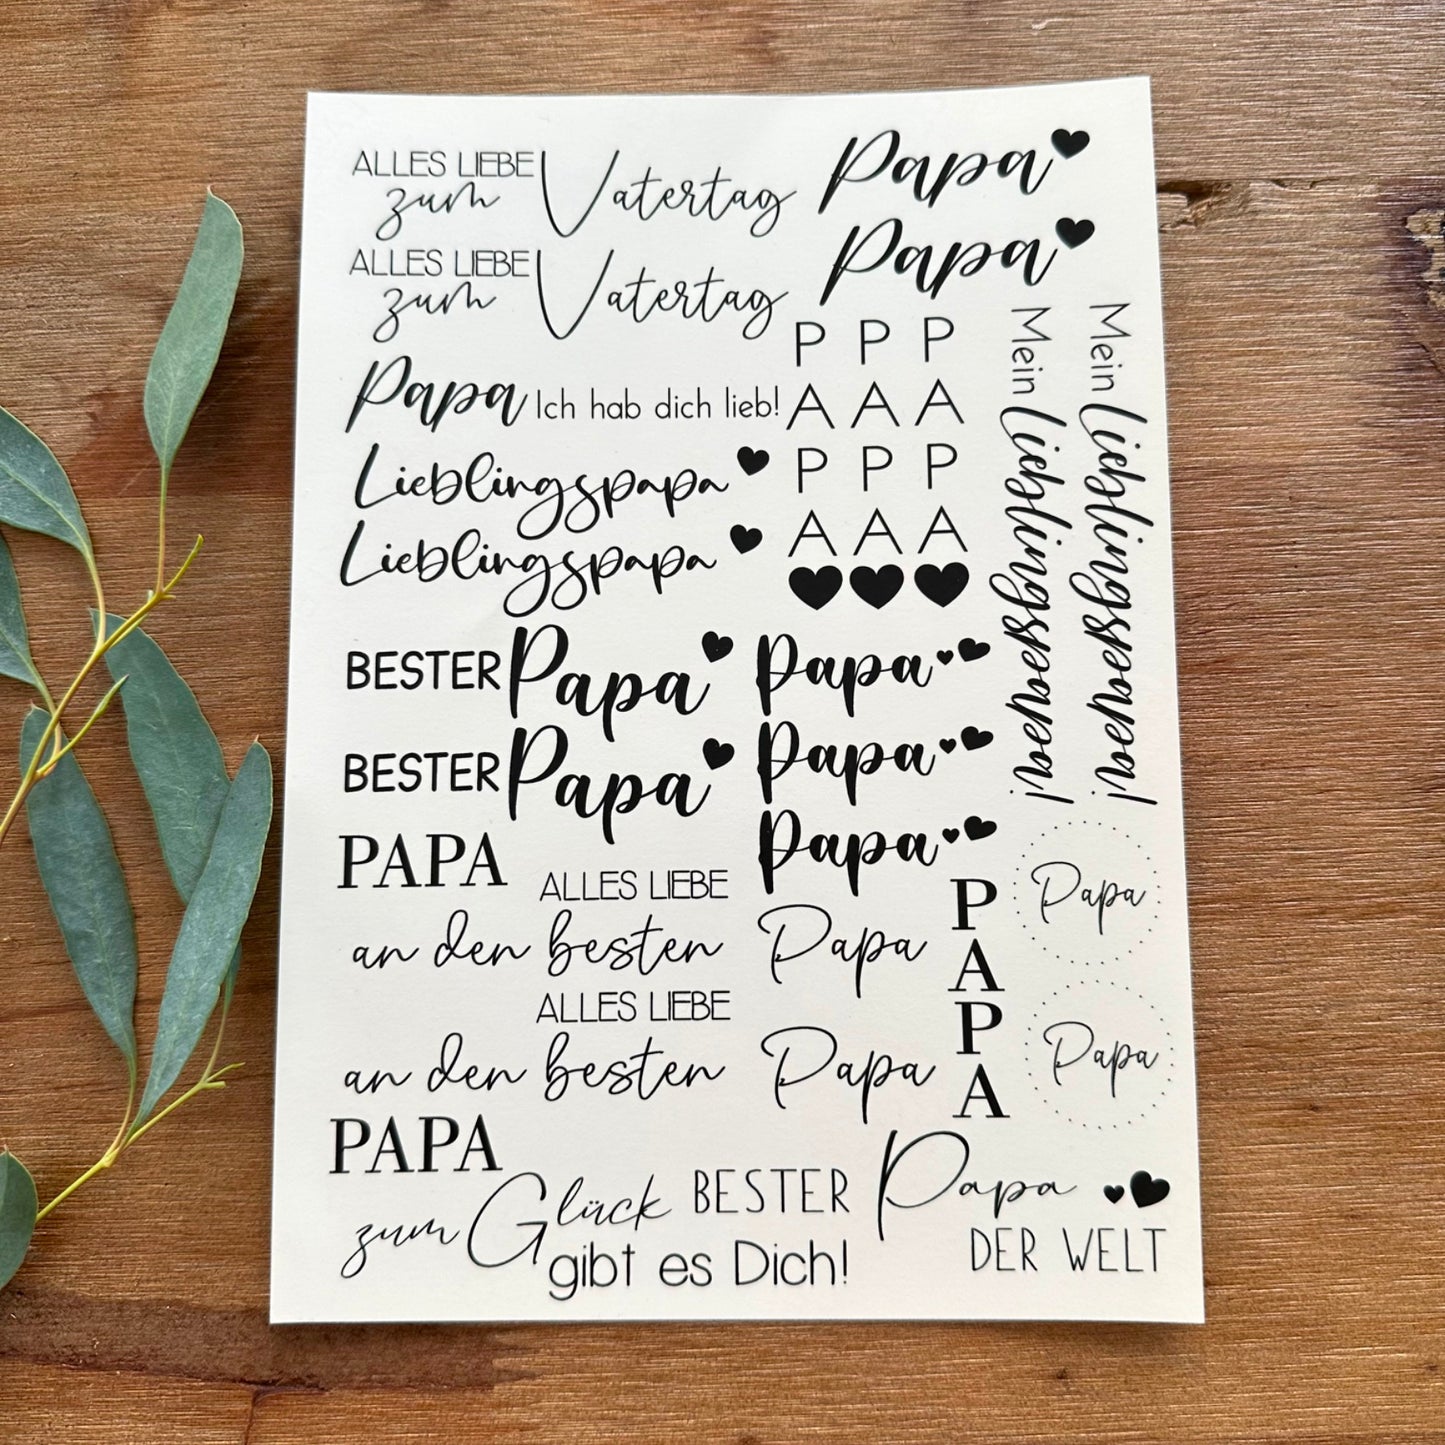 ALLES LIEBE
zum Vatertag
Papa
ALLES LIEBE
zum Vatertag
Papa
Papa Ich hab dich lieb!
Lieblingspapa
Lieblingspapa
P P P
A A A
P P P
A A A
Mein Lieblingsmensch!
Mein Lieblingsmensch!
BESTER Papa
BESTER Papa
Papa
Papa
Papa
PAPA
ALLES LIEBE
an den besten Papa
ALLES LIEBE
an den besten Papa
P
A
P
A
Papa
Papa
PAPA
zum Glück
gibt es Dich!
BESTER Papa
DER WELT